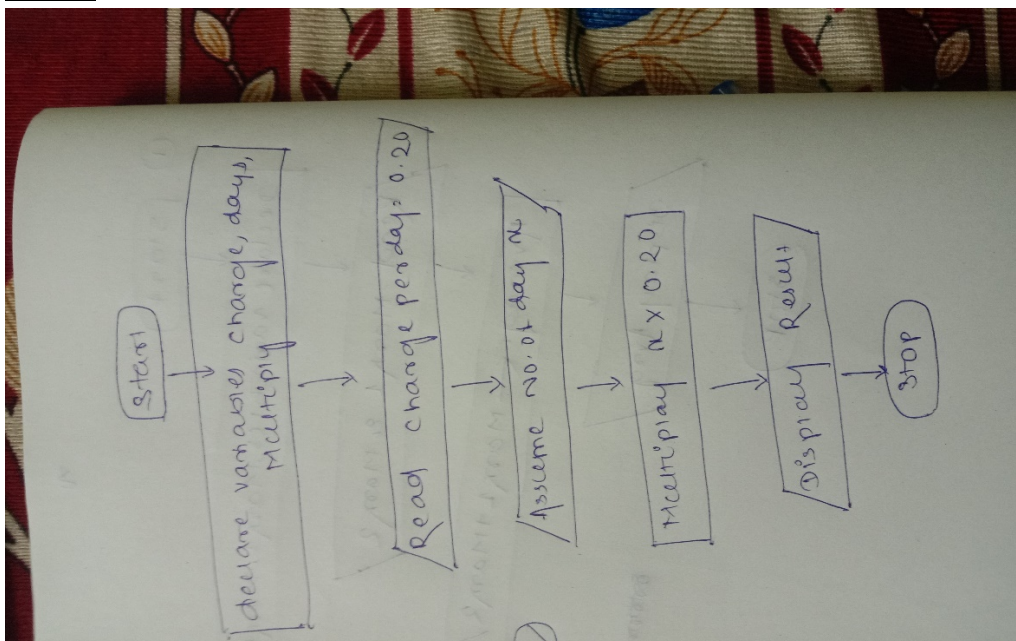 Start
declare variables charge, days,
Multiply
Read charge perday = 0.20
Assume no. of day x
Multiplay x X 0.20
Display Result
Stop